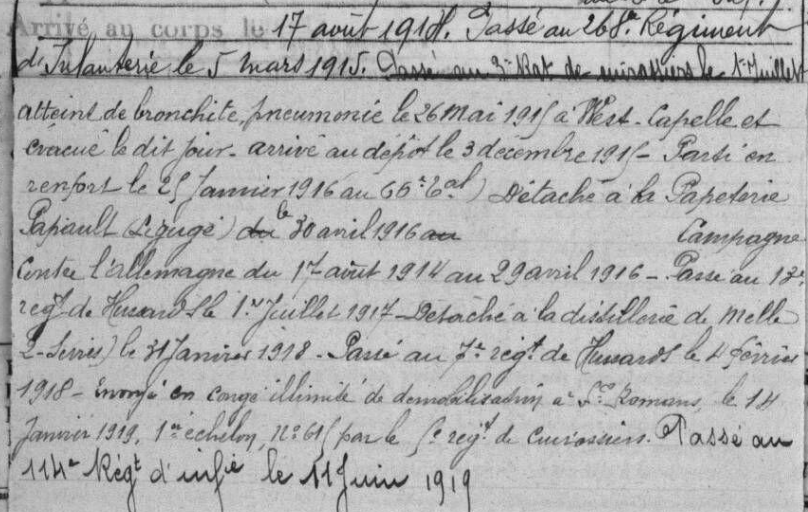 Arrivé au corps le 17 août 1914. Passé au 268e Régiment
d'Infanterie le 5 mars 1915. Passé au 3e Bat de cuirassiers le 1er Juillet
atteint de bronchite, pneumonie le 26 Mai 1915 à West-Capelle et
évacué le dit jour - arrivé au dépôt le 3 décembre 1915 - Parti en
renfort le 25 Janvier 1916 au 66e Bal) Détaché à la Papeterie
Papault (Ligugé) du le 30 avril 1916 au Campagne
Contre l'allemagne du 17 août 1914 au 29 avril 1916 - Passé au 13e
regt de Hussards le 1er Juillet 1917 - Détaché à la distillerie de Melle
2-Sevres) le 31 Janvier 1918 - Passé au 7e regt de Hussards le 4 février
1918 - Envoyé en congé illimité de demobilisation à St Romans, le 14
Janvier 1919, 1er échelon, No 615 par le 5e regt de Cuirassiers. Passé au
114e Régt d'infie le 11 Juin 1919